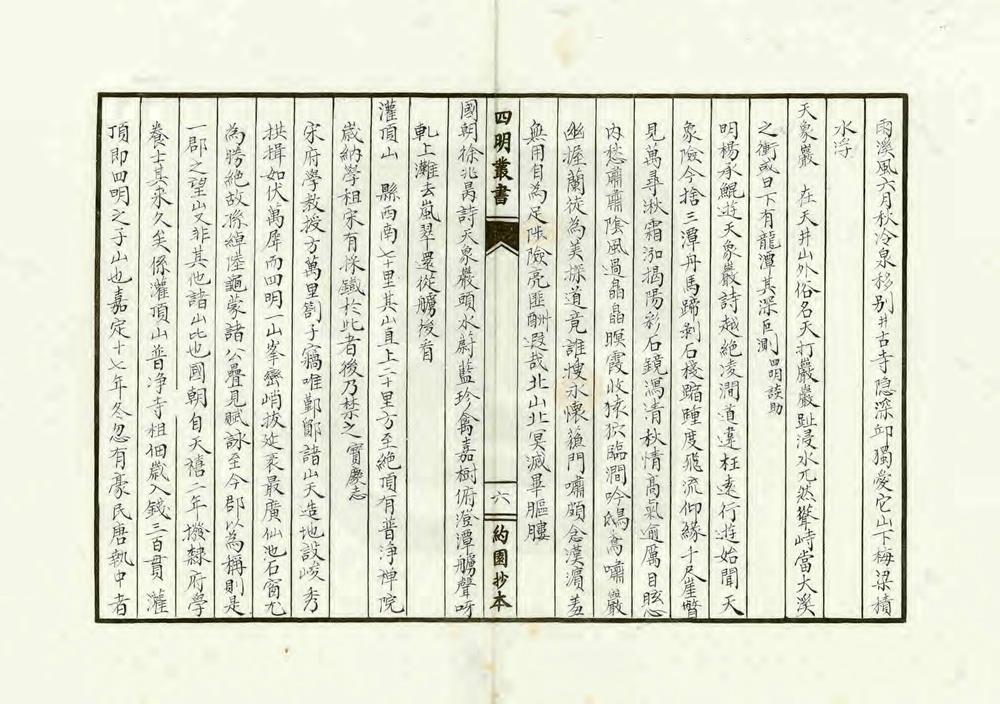 雨溪風六月秋冷泉移別井古寺隐深卭獨愛它山下梅梁積
水浮
天象巖　在天井山外俗名天打巖巖趾浸水兀然聳峙當大溪
之衝或日下有龍潭其深叵測四明談助
明楊承鯤遊天象巖詩越絶凌澗道違枉遠行遊始聞天
象險今捨三潭丹馬蹄剝石棧踏踵度飛流仰緣十尺崖瞥
見萬尋湫霜泓揭陽彩石鏡瀉清秋情高氣逾厲目眩
内愁肅肅陰風過晶晶暝霞收猿狖臨澗吟鴟鳥嘯巖
幽握蘭徒為美探道竟誰搜永懷蘓門嘯頗念漢濵羞
無用自為足陟險亮匪酬遐哉北山北冥滅畢軀髏
四明叢書
六
約園抄本
國朝徐兆昺詩天象巖頭水蔚藍珍禽嘉樹俯澄潭艣聲呀
軋上灘去嵐翠還從艣後看
灌頂山　縣西南七十里其山直上二十里方至絶頂有普淨禅院
歲納學租宋有採鐵於此者後乃禁之寶慶志
宋府學教授方萬里劄子竊唯鄞鄮諸山天造地設峻秀
拱揖如伏萬犀而四明一山峯巒峭拔延袤最廣仙池石窗尤
為勝絶故孫綽陸龜蒙諸公疊見賦詠至今郡以為稱則是
一郡之望山又非其他諸山比也國朝自天禧二年撥隸府學
養士其來久矣係灌頂山普净寺租佃歲入錢三百貫　灌
頂即四明之子山也嘉定十七年冬忽有豪民唐執中者